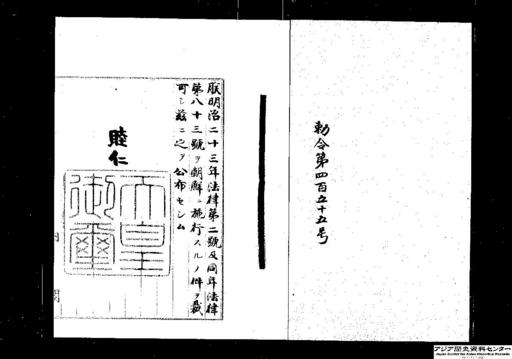 勅令第四百五十五号
朕明治二十三年法律第二號及同年法律
第八十三號ヲ朝鮮ニ施行スルノ件ヲ裁
可シ茲ニ之ヲ公布セシム
睦仁
天皇
御璽
アジア歴史資料センター
Japan Center for Asian Historical Records